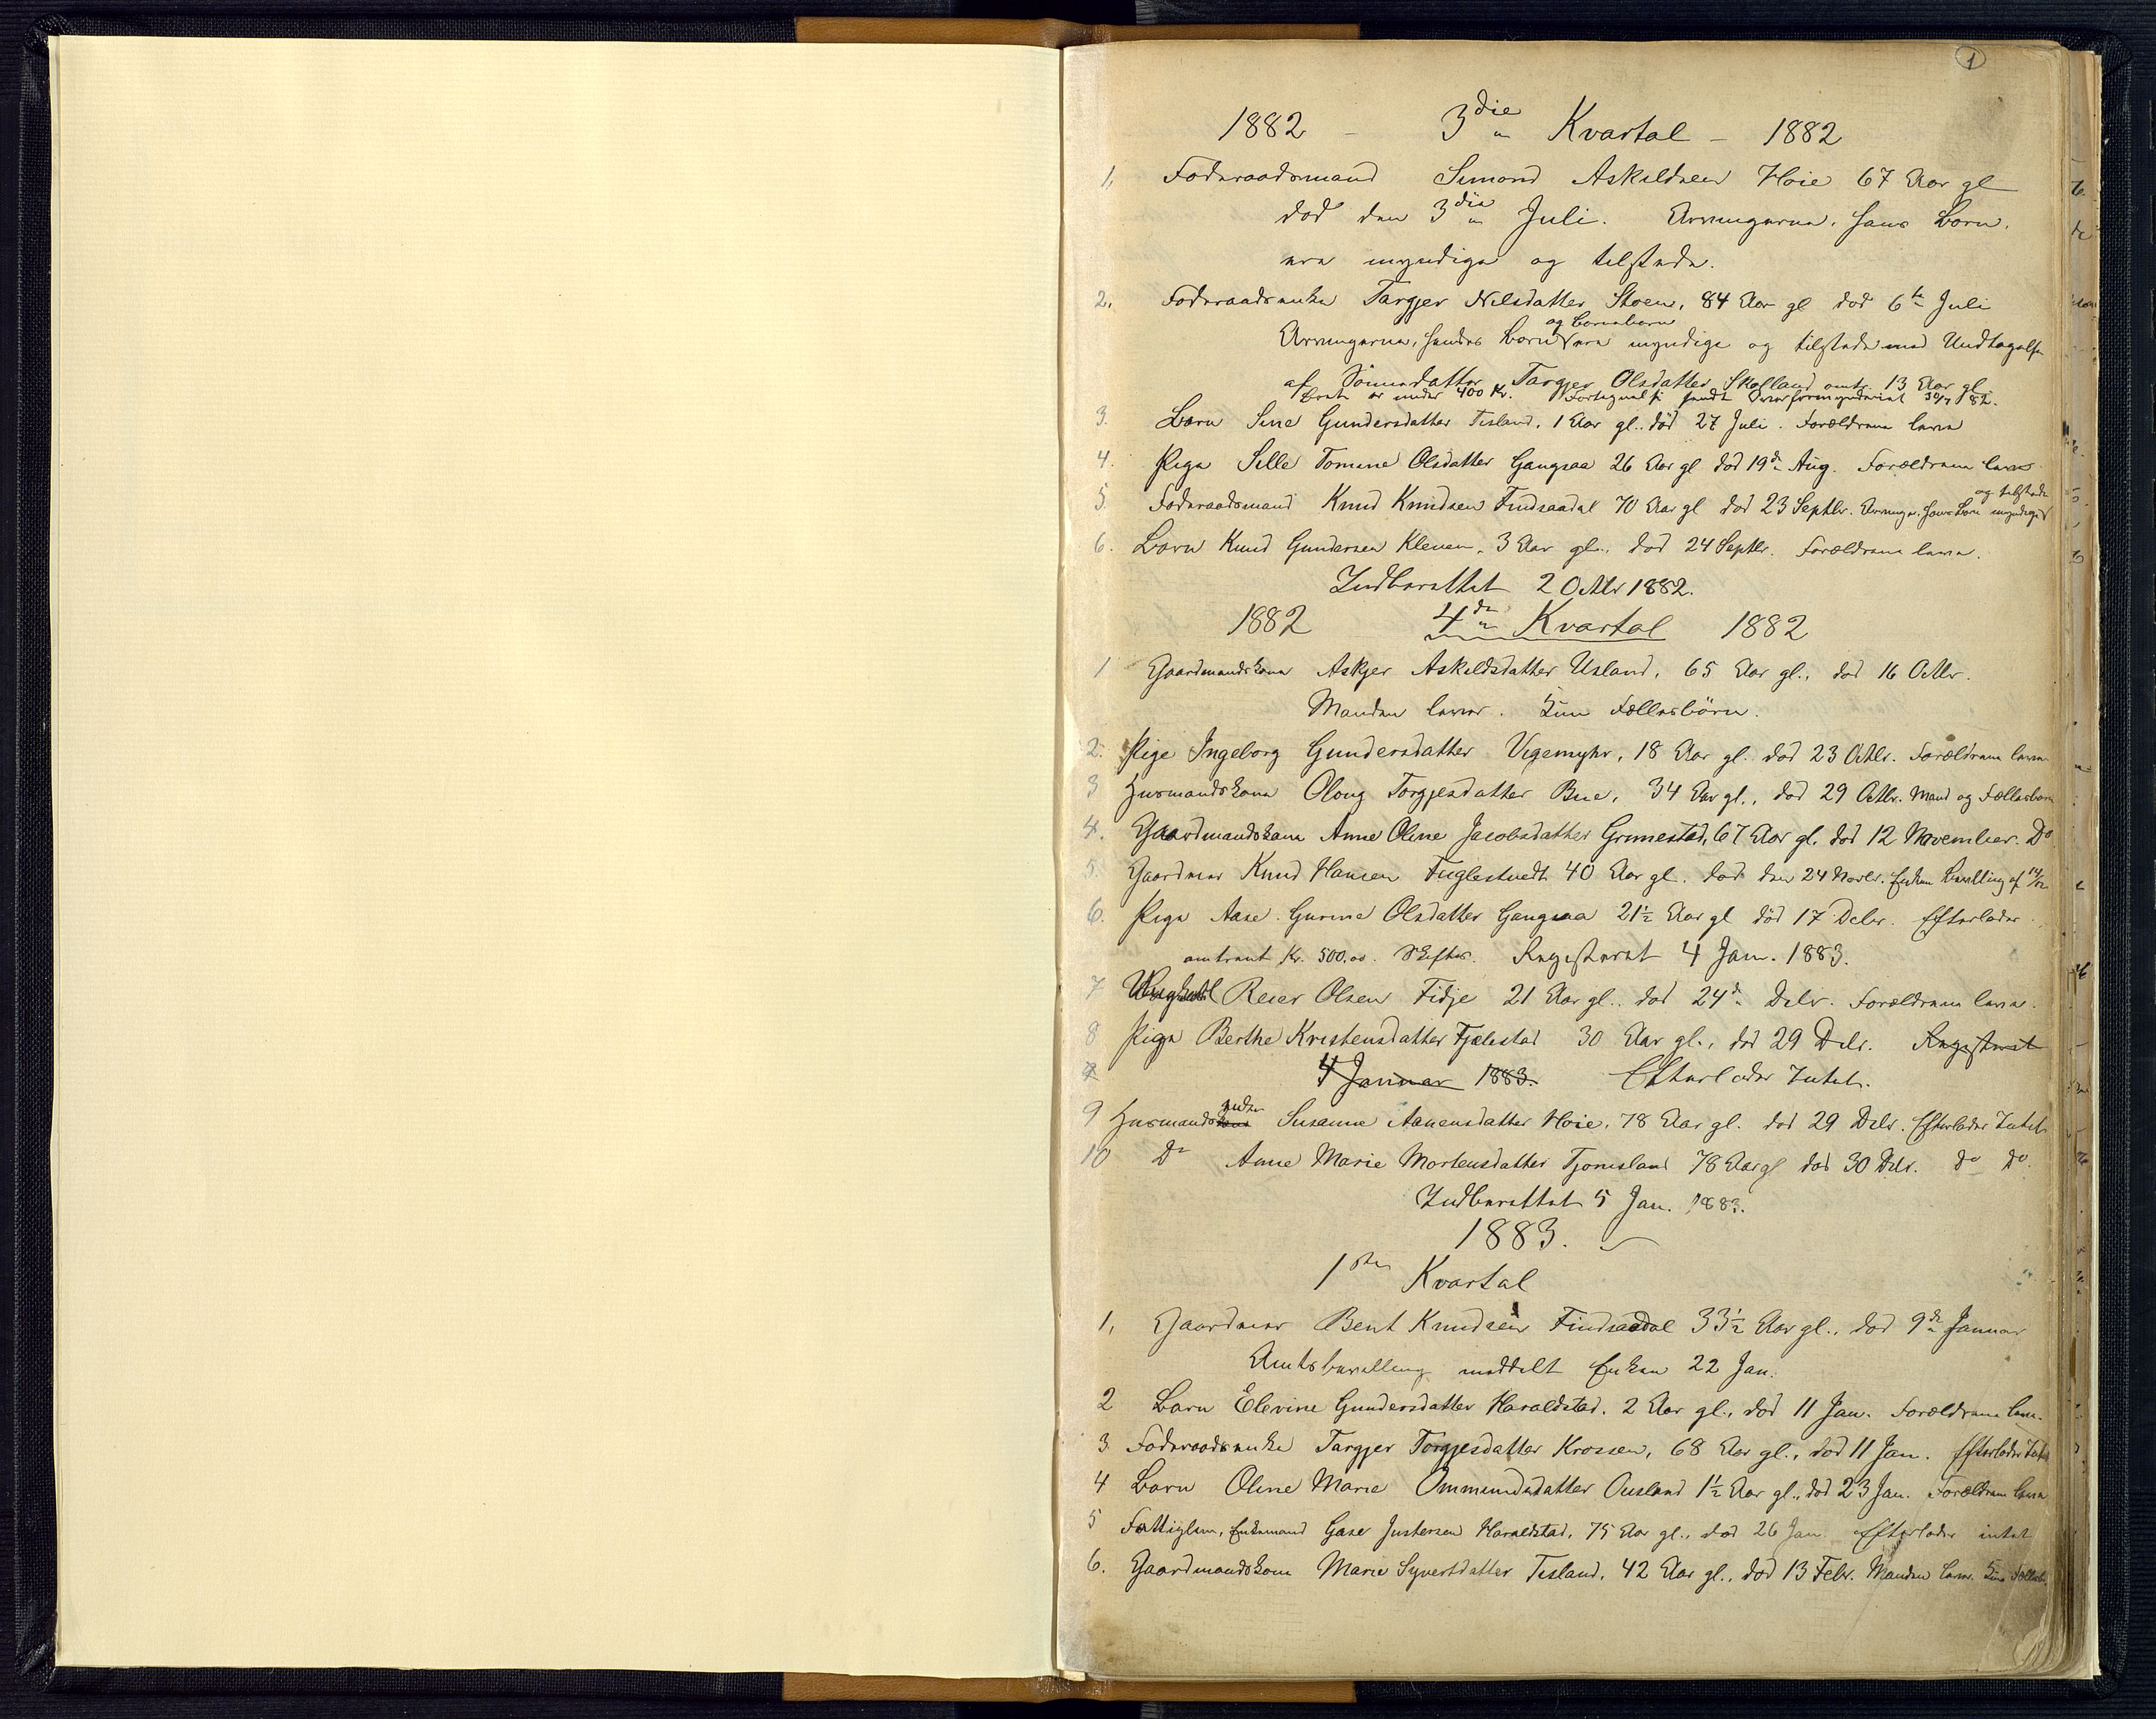 1
1882 - 3die Kvartal - 1882
1, Føderaadsmand Simond Askildsen Høie 67 Aar gl
død den 3die Juli. Arvingerne, hans Børn,
ere myndige og tilstede.
2. Føderaadsenke Targjer Nilsdatter Stoen, 84 Aar gl død 6te Juli
og Børnebørn
Arvingerne, hendes Børn ere myndige og tilstede med Undtagelse
af Sønnedatter Targjer Olsdatter Skolland omtr. 13 Aar gl
Boets er under 400 Kr. Fortegnelse sendt Overformynderiet 30/9 82.
3. Barn Sine Gundersdatter Tisland, 1 Aar gl. død 27 Juli. Forældrene leve
4. Pige Sille Tomine Olsdatter Gangsaa 26 Aar gl død 19de Aug. Forældrene leve
og tilstede
5. Føderaadsmand Knud Knudsen Findsaadal 70 Aar gl død 23 Septbr. Arvinger, hans Børn myndige
6. Barn Knud Gundersen Kleven, 3 Aar gl., død 24 Septbr. Forældrene leve.
Indberettet 2 Octbr 1882.
1882 4de Kvartal 1882
1 Gaardmandskone Askjer Askildsdatter Usland, 65 Aar gl., død 16 Octbr.
Manden lever. Kun Fællesbörn.
2. Pige Ingeborg Gundersdatter Vigemyhr, 18 Aar gl. død 23 Octbr. Forældrene leve
3 Husmandskone Oloug Torgjesdatter Bue, 34 Aar gl., død 29 Octbr. Mand og Fællesbørn
4. Gaardmandskone Anne Oline Jacobsdatter Grimestad, 67 Aar gl. død 12 November. Do
5. Gaardmand Knud Hansen Fuglestvedt 40 Aar gl. død den 24 Novbr. Enken Bevilling af 14/12
6. Pige Aase Gurine Olsdatter Gangsaa 21½ Aar gl död 17 Decbr. Efterlader
omtrent Kr. 500.00. Registeret 4 Jan. 1883.
7 Ungkarl Reier Olsen Fidje 21 Aar gl. død 24de Decbr. Forældrene leve.
8 Pige Berthe Kristensdatter Fjælestad 30 Aar gl., død 29 Decbr. Registeret
4 Januar 1883. Efterlader Intet.
enke
9 Husmandskone Susanne Aanensdatter Høie, 78 Aar gl. død 29 Decbr. Efterlader Intet
10 Do Anne Marie Mortensdatter Tjomsland 78 Aar gl død 30 Decbr. do do.
Indberettet 5 Jan. 1883.
1883.
1ste Kvartal
1, Gaardmand Bent Knudsen Findsaadal 33½ Aar gl., død 9de Januar
Amtsbevilling meddelt Enken 22 Jan.
2 Barn Elevine Gundersdatter Haraldstad. 2 Aar gl., død 11 Jan. Forældrene leve.
3 Føderaadsenke Targjer Torgjesdatter Krossen, 68 Aar gl., død 11 Jan. Efterlader Intet
4 Barn Oline Marie Ommundsdatter Ousland 1½ Aar gl., død 23 Jan. Forældrene leve
5 Fattiglem, Enkemand Gaser Justersen Haraldstad, 75 Aar gl., død 26 Jan. Efterlader intet
6. Gaardmandskone Marie Syvertsdatter Tisland, 42 Aar gl., død 13 Febr. Manden lever. Kun Fællesb.